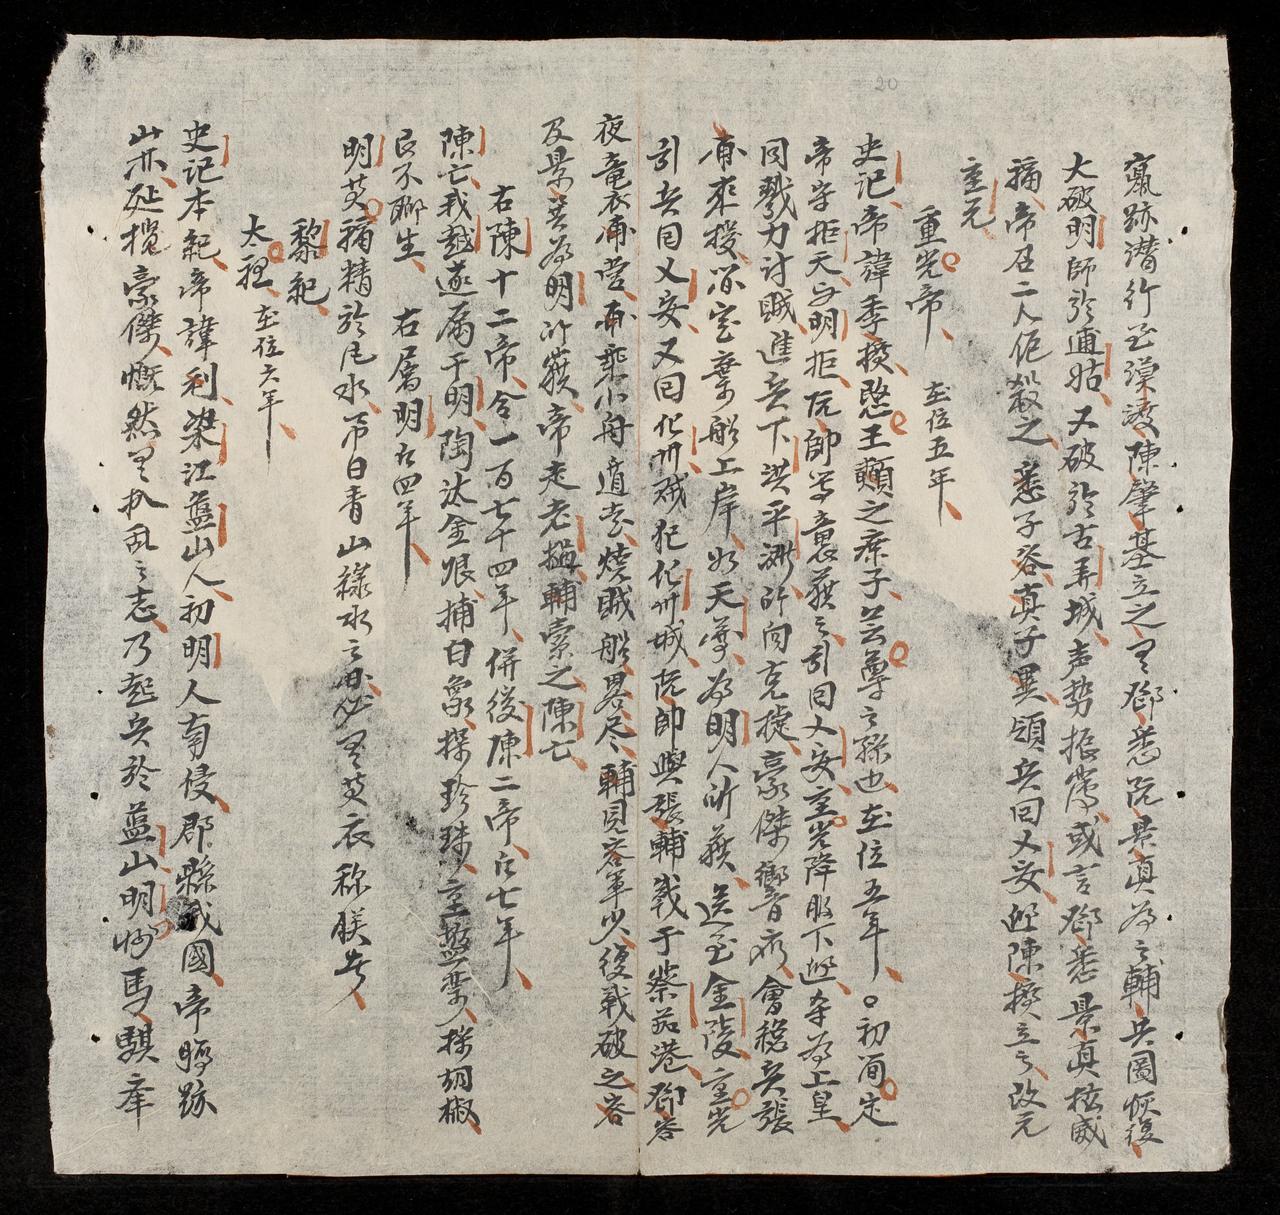 竄跡潛行至漠渡陳肇基立之以鄧悉阮景真為之輔共圖恢復
大破明師於逋姑又破於古弄城声势振薄或言鄧悉景真扺威
福帝召二人佢殺之悉子容真子異領兵回乂安迎陳擴立之改元
重光
重光帝 在位五年
史記帝諱季擴愍王頵之庶子芸尊之孫也在位五年○初簡定
帝守拒天与明拒阮帥等襲获之引回乂安重光降服下迎尊為上皇
同戮力討賊進兵下洪平灘所向克捷豪傑響應會穏兵張
甫來援簡定棄船上岸如天尊為明人所获送至金陵重光
引兵回乂安又回化州賊犯化州城阮帥與張輔戰于蔡茄港鄧容
夜竜衣甫营甫乘小舟遁去燒賊船畧尽輔見容軍少復戰破之容
及景異為明所獲帝走老撾輔索之陳亡
右陳十二帝合一百七十四年併後陳二帝凡七年
陳亡我越遂属于明陶汰金銀捕白象採珍珠重盐禁採胡椒
民不聊生 右属明凡四年
明黄福精於風水常曰青山綠水之間必以黄衣称朕者
黎紀
太祖 在位六年
史記本紀帝諱利梁江藍山人初明人南侵郡縣我國帝晦跡
山亦延攬豪傑慨然以扒乱之志乃起兵於藍山明将馬騏率